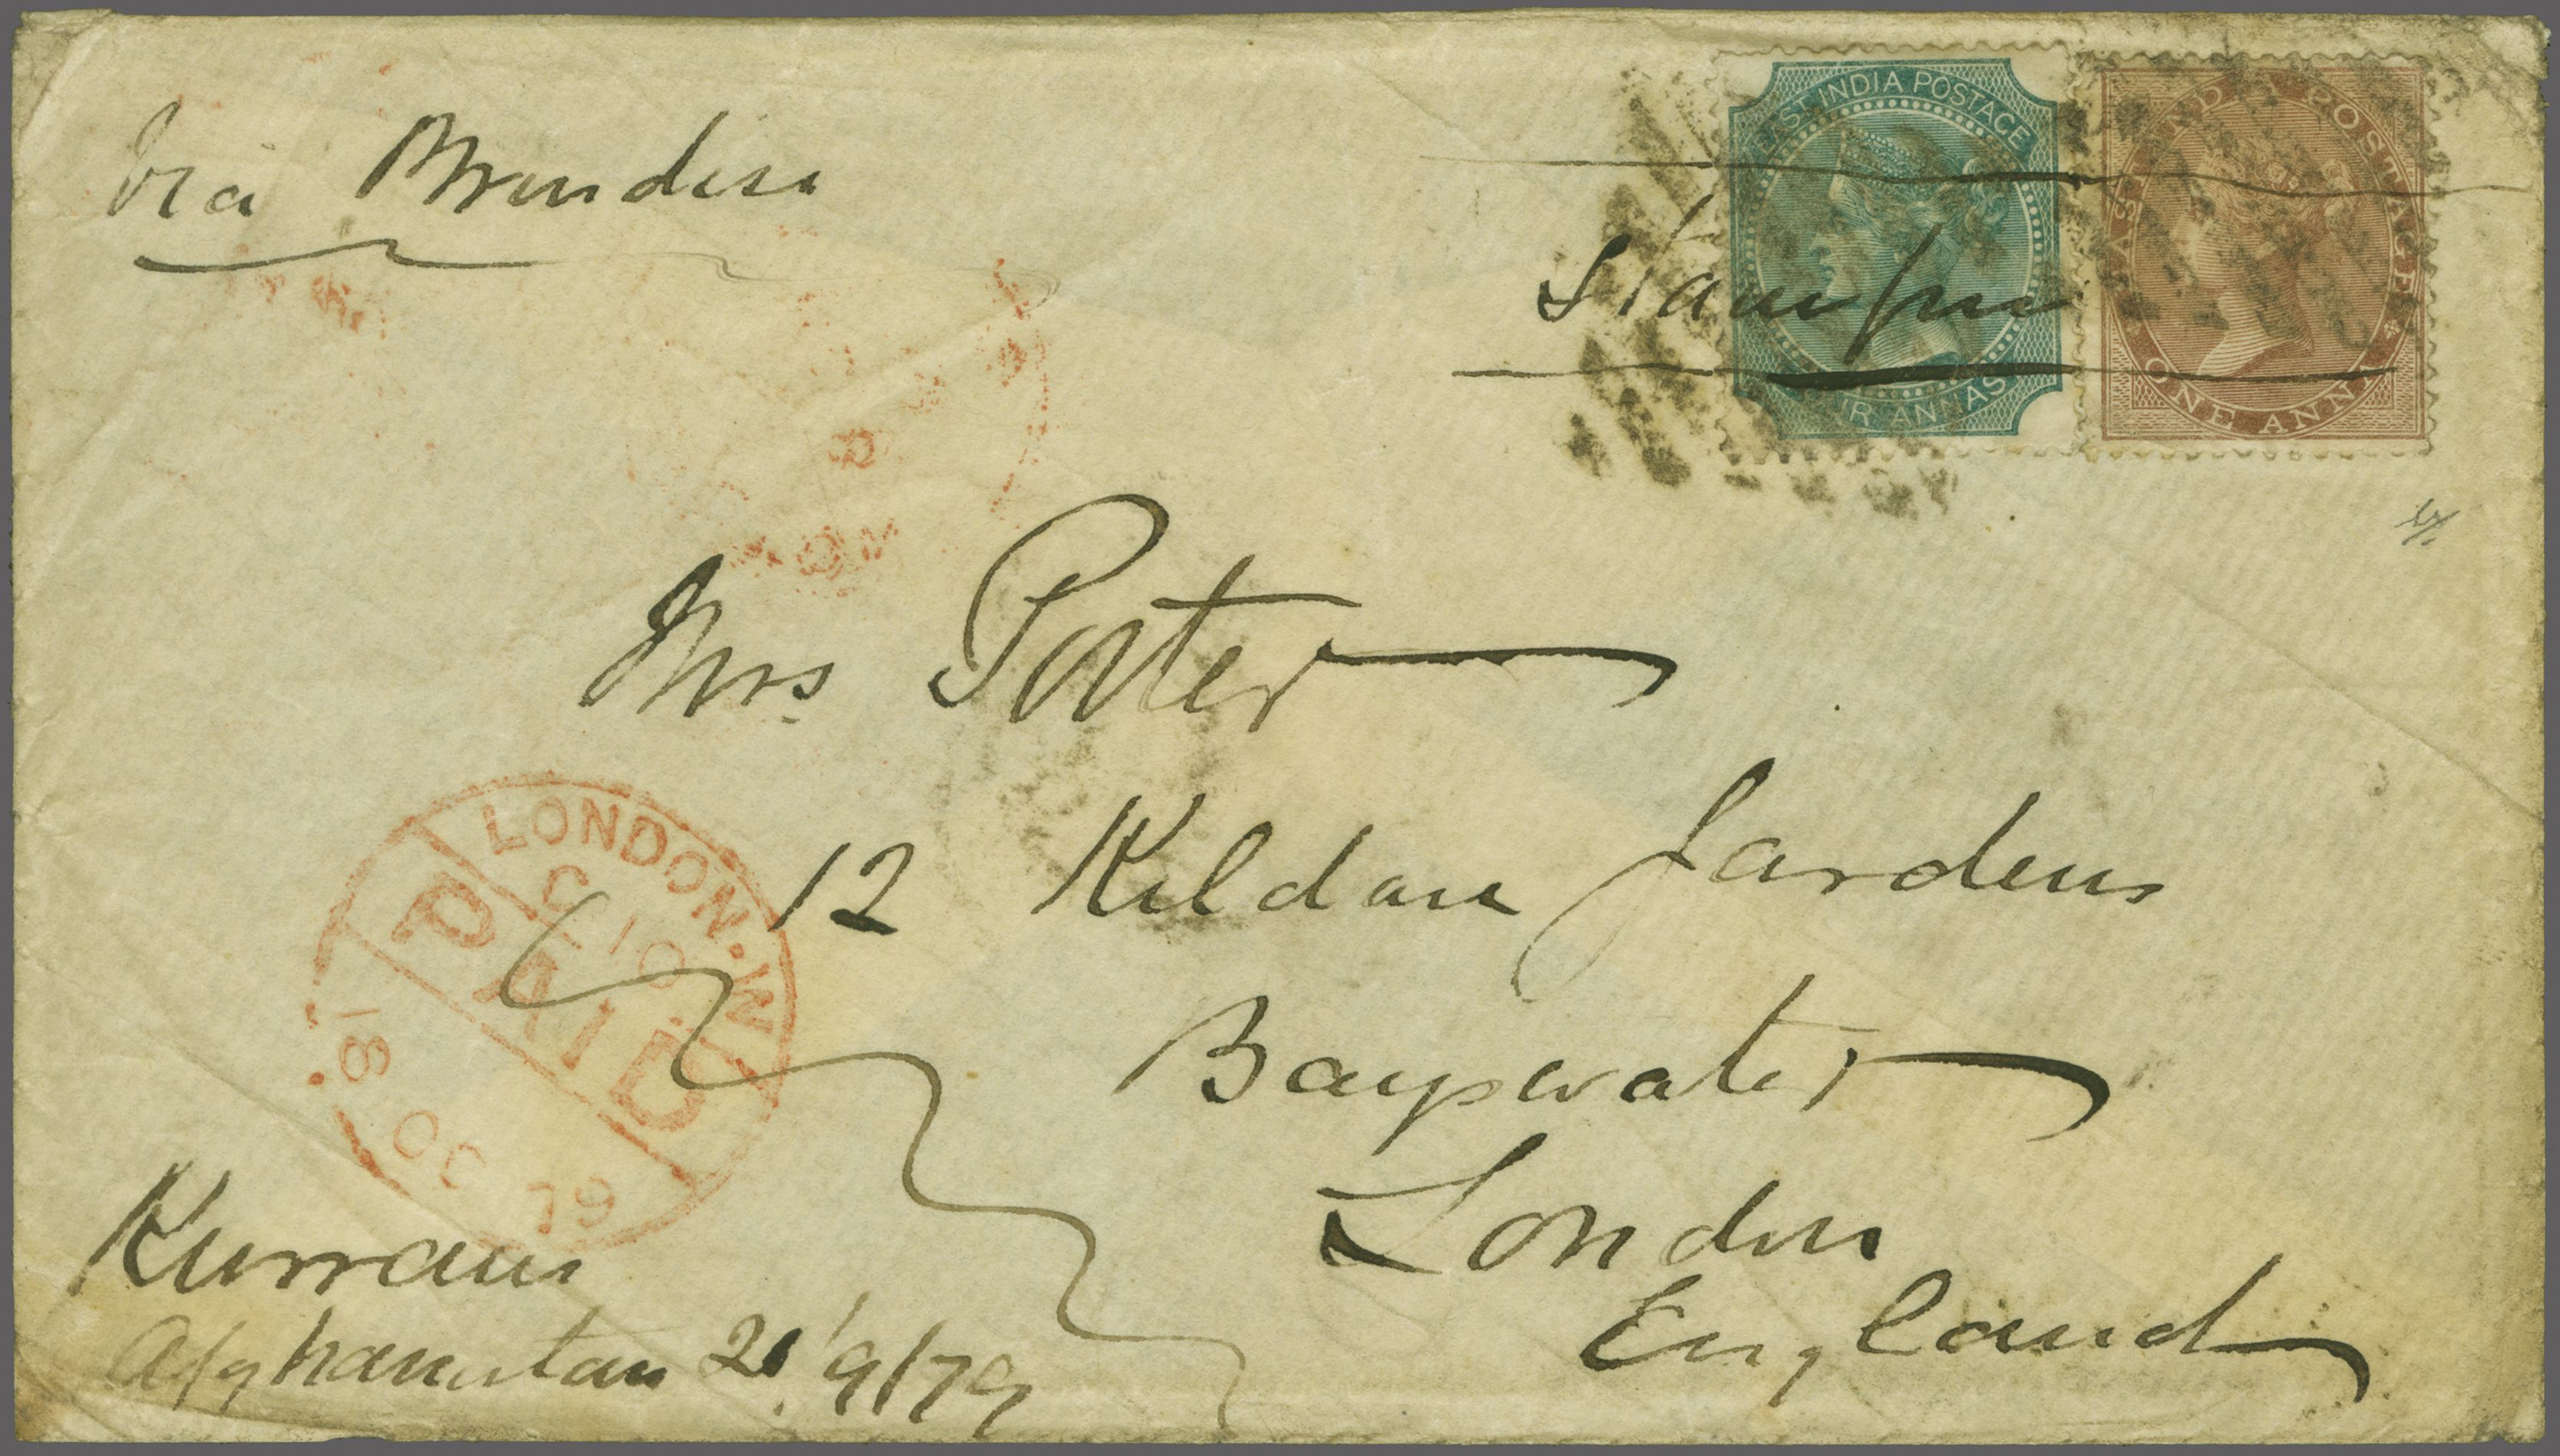 Via Brindisi
EAST INDIA POSTAGE
FOUR ANNAS
EAST INDIA POSTAGE
ONE ANNA
Stamped
Mrs Porter
12 Kildare Gardens
Bayswater
London
England
LONDON·W
C 10
PAID
18 OC 79
Kurram
Afghanistan 21/9/79